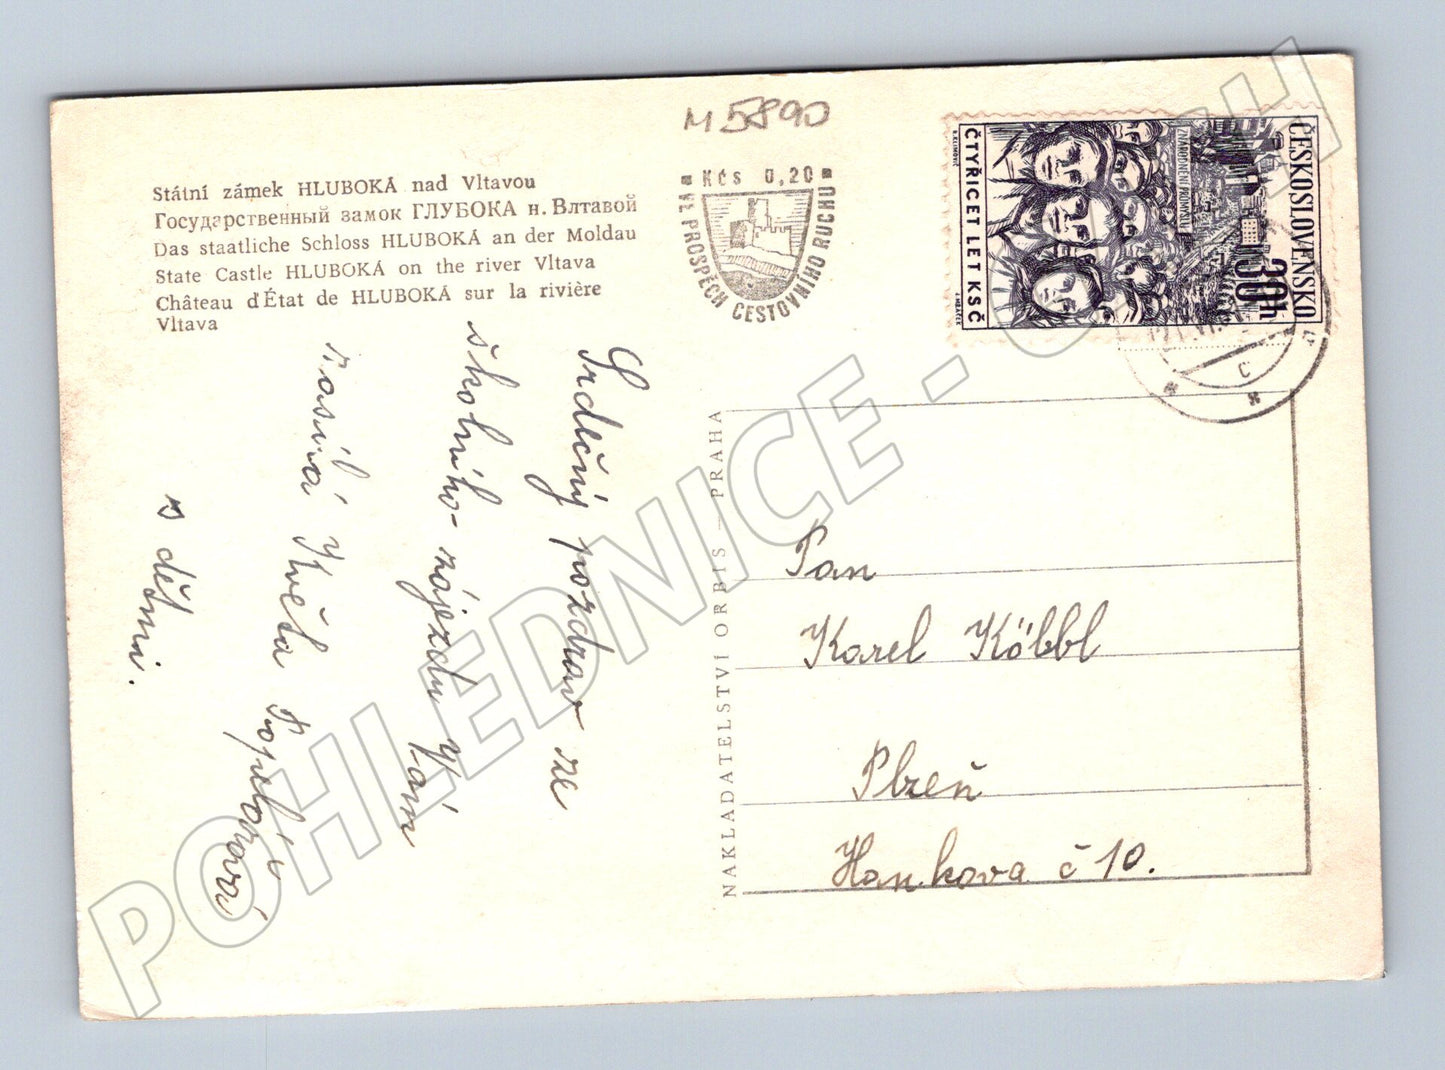 M 5890
Státní zámek HLUBOKÁ nad Vltavou
Государственный замок ГЛУБОКА н. Влтавой
Das staatliche Schloss HLUBOKÁ an der Moldau
State Castle HLUBOKÁ on the river Vltava
Château d'État de HLUBOKÁ sur la rivière
Vltava
Kčs 0,20
VE PROSPĚCH CESTOVNÍHO RUCHU
ČESKOSLOVENSKO
30h
ZNÁRODNĚNÍ PRŮMYSLU
ČTYŘICET LET KSČ
Srdečný pozdrav ze
školního zájezdu Vám
zasílá Květa
s dětmi.
NAKLADATELSTVÍ ORBIS — PRAHA
Pan
Karel Köbbl
Plzeň
Hankova č 10.
POHLEDNICE -